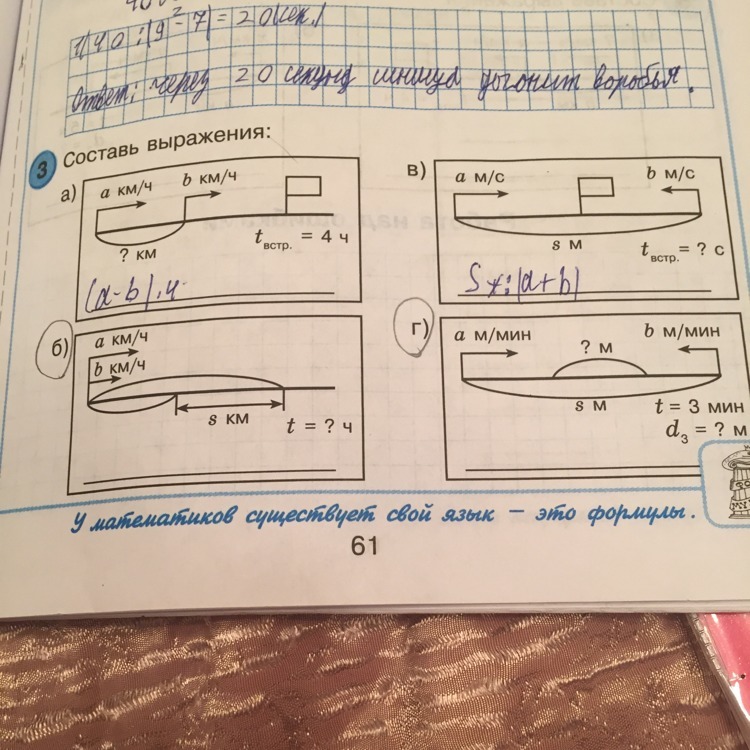 1) 40 : (9 - 7) = 20 (сек.)
Ответ: через 20 секунд синица догонит воробья.
3 Составь выражения:
а) a км/ч b км/ч
? км
tвстр. = 4 ч
(a-b) · 4
в) a м/с b м/с
s м
tвстр. = ? с
S : (a+b)
б) a км/ч
b км/ч
s км
t = ? ч
г) a м/мин ? м b м/мин
s м
t = 3 мин
d₃ = ? м
У математиков существует свой язык – это формулы.
61